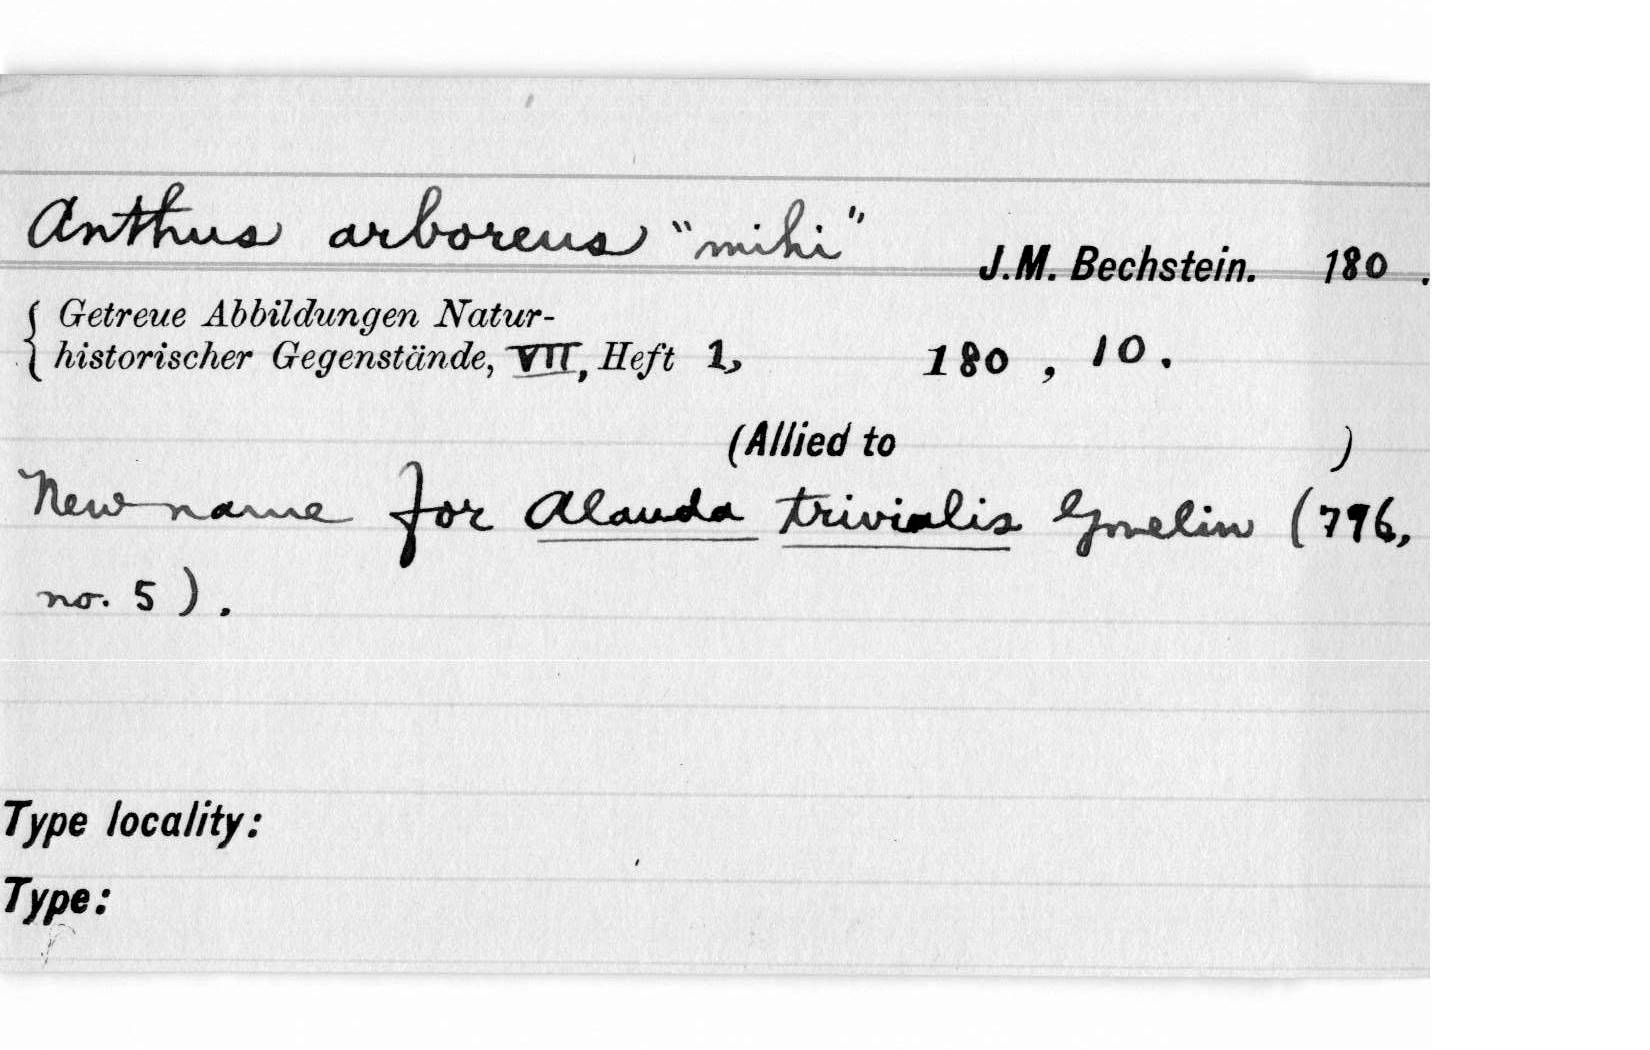 Anthus arboreus "mihi"
J.M. Bechstein. 180 .
Getreue Abbildungen Natur-
historischer Gegenstände, VII, Heft 1, 180 , 10.
(Allied to )
New name for Alauda trivialis Gmelin (796,
no. 5).
Type locality:
Type: